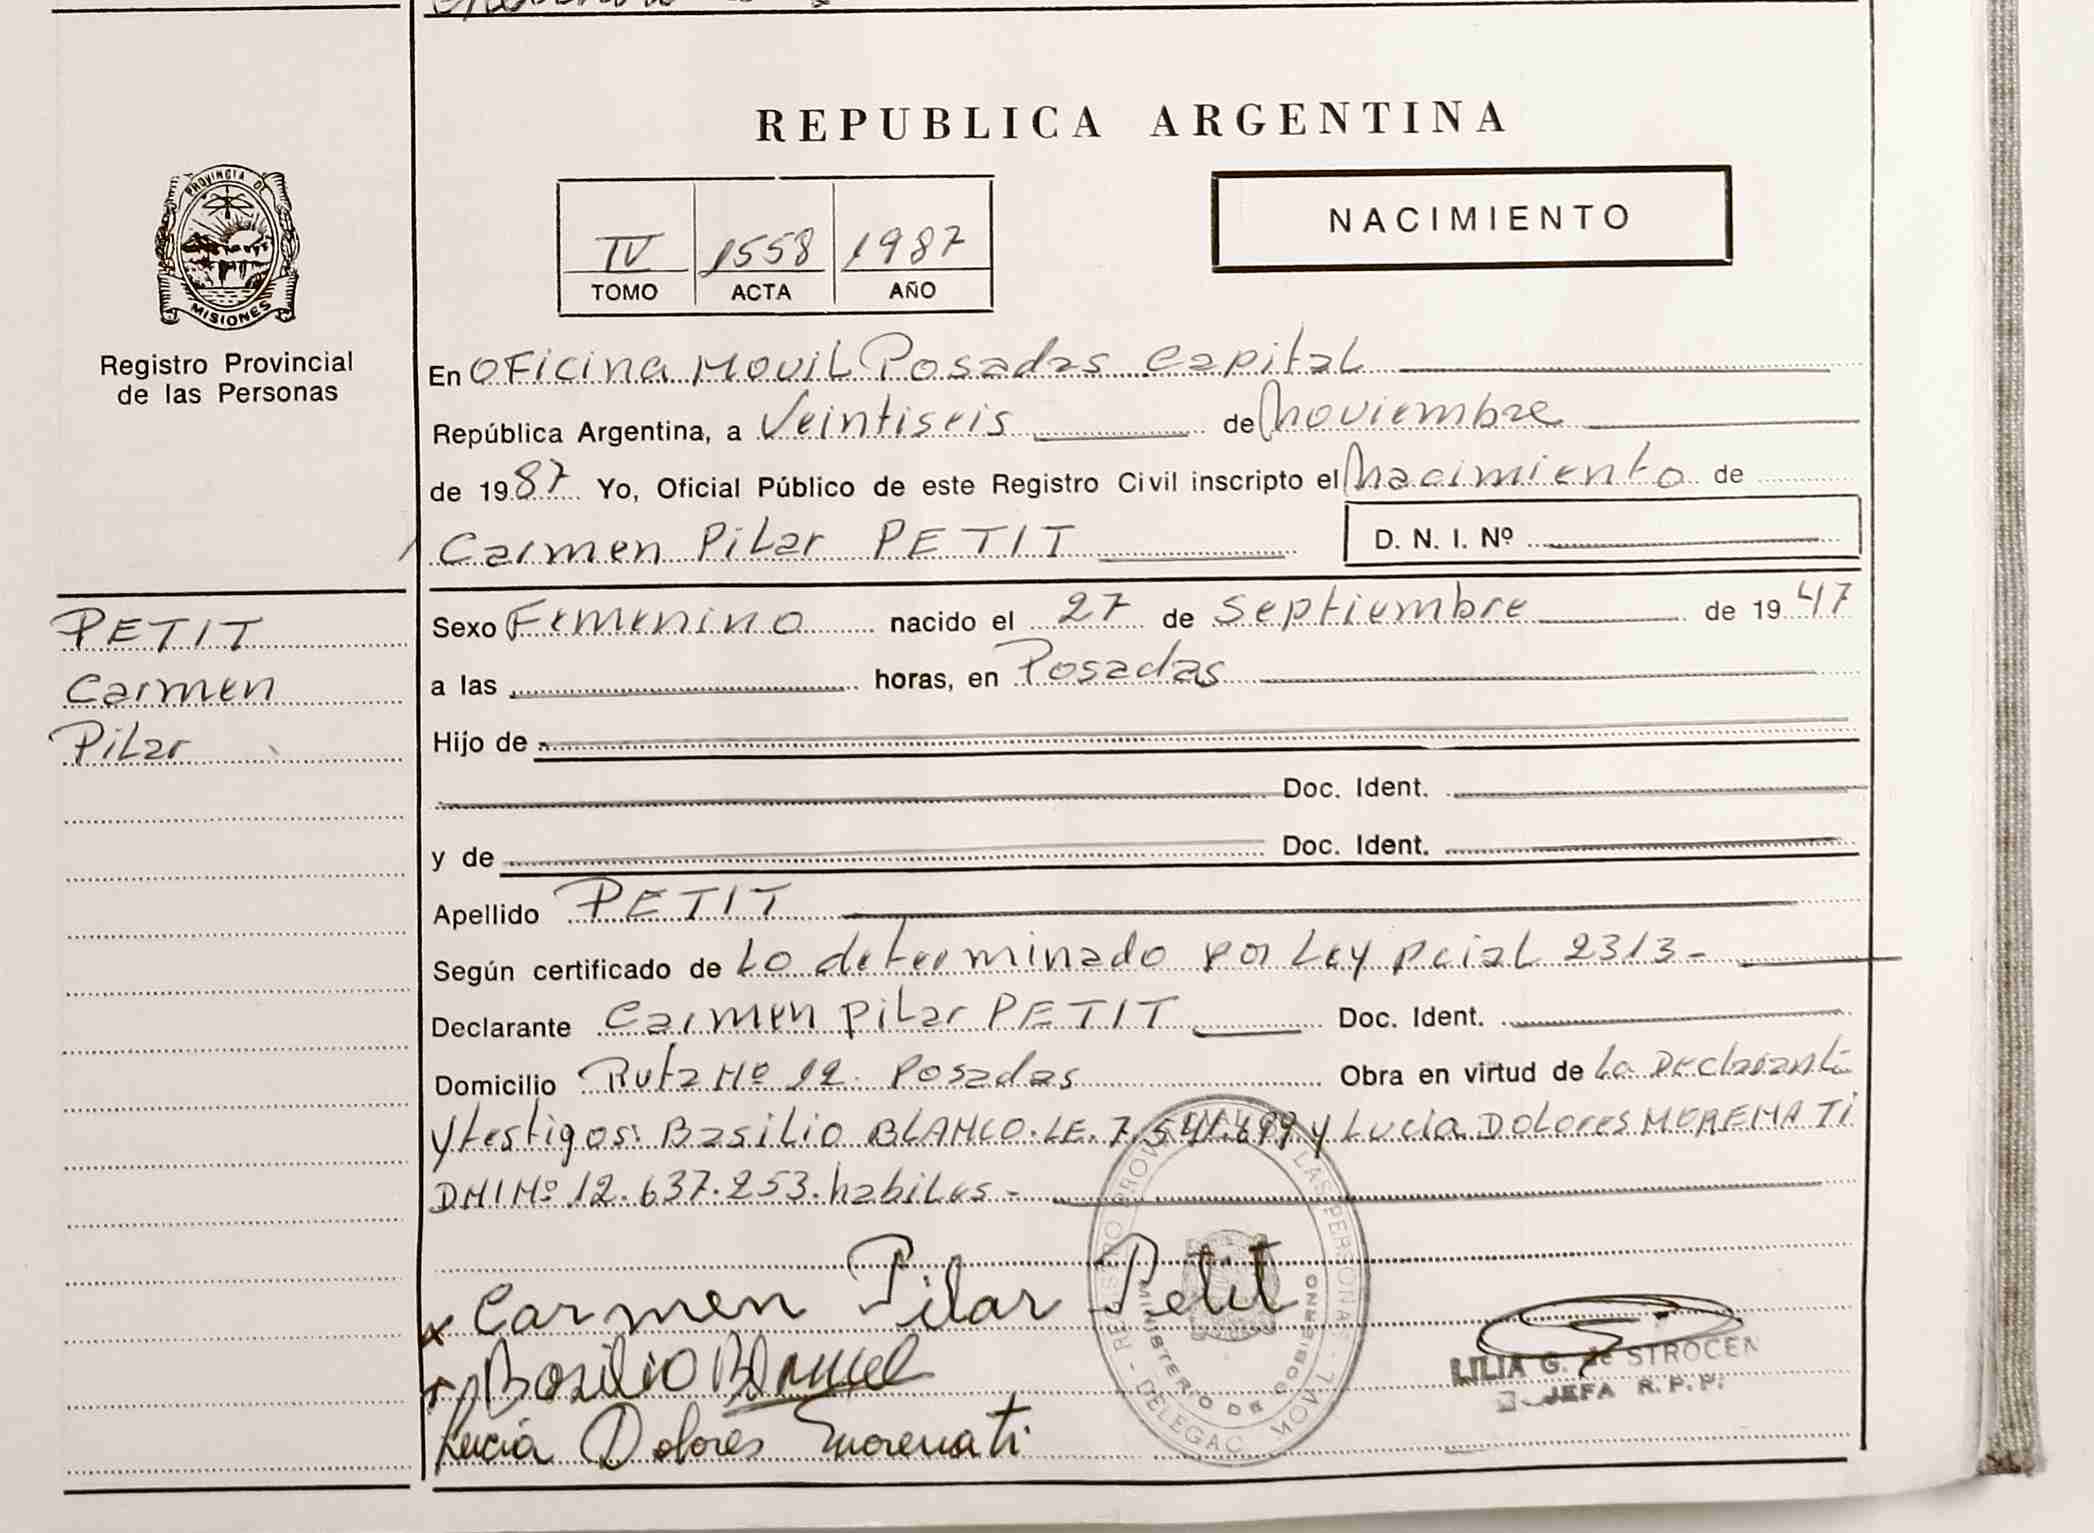 REPUBLICA ARGENTINA
PROVINCIA DE
MISIONES
Registro Provincial
de las Personas
NACIMIENTO
IV 1558 1987
TOMO ACTA AÑO
En OFicina Movil Posadas Capital
República Argentina, a Veintiseis de Noviembre
de 1987 Yo, Oficial Público de este Registro Civil inscripto el Nacimiento de
Carmen Pilar PETIT D. N. I. Nº
PETIT
Carmen
Pilar
Sexo Femenino nacido el 27 de Septiembre de 1947
a las horas, en Posadas
Hijo de
Doc. Ident.
y de Doc. Ident.
Apellido PETIT
Según certificado de Lo determinado por Ley pcial 2313-
Declarante Carmen Pilar PETIT Doc. Ident.
Domicilio Ruta Nº 12. Posadas Obra en virtud de La Declarante
y testigos: Basilio BLANCO. LE. 7.541.699 y Lucia Dolores MORENATI
DNI Nº 12.637.253. habiles -
x Carmen Pilar Petit
Basilio Blanco
Lucia Dolores Morenati
REGISTRO PROVINCIAL DE LAS PERSONAS
MINISTERIO DE GOBIERNO
DELEGAC. MOVIL
LILIA G. de STROCEN
JEFA R.P.P.